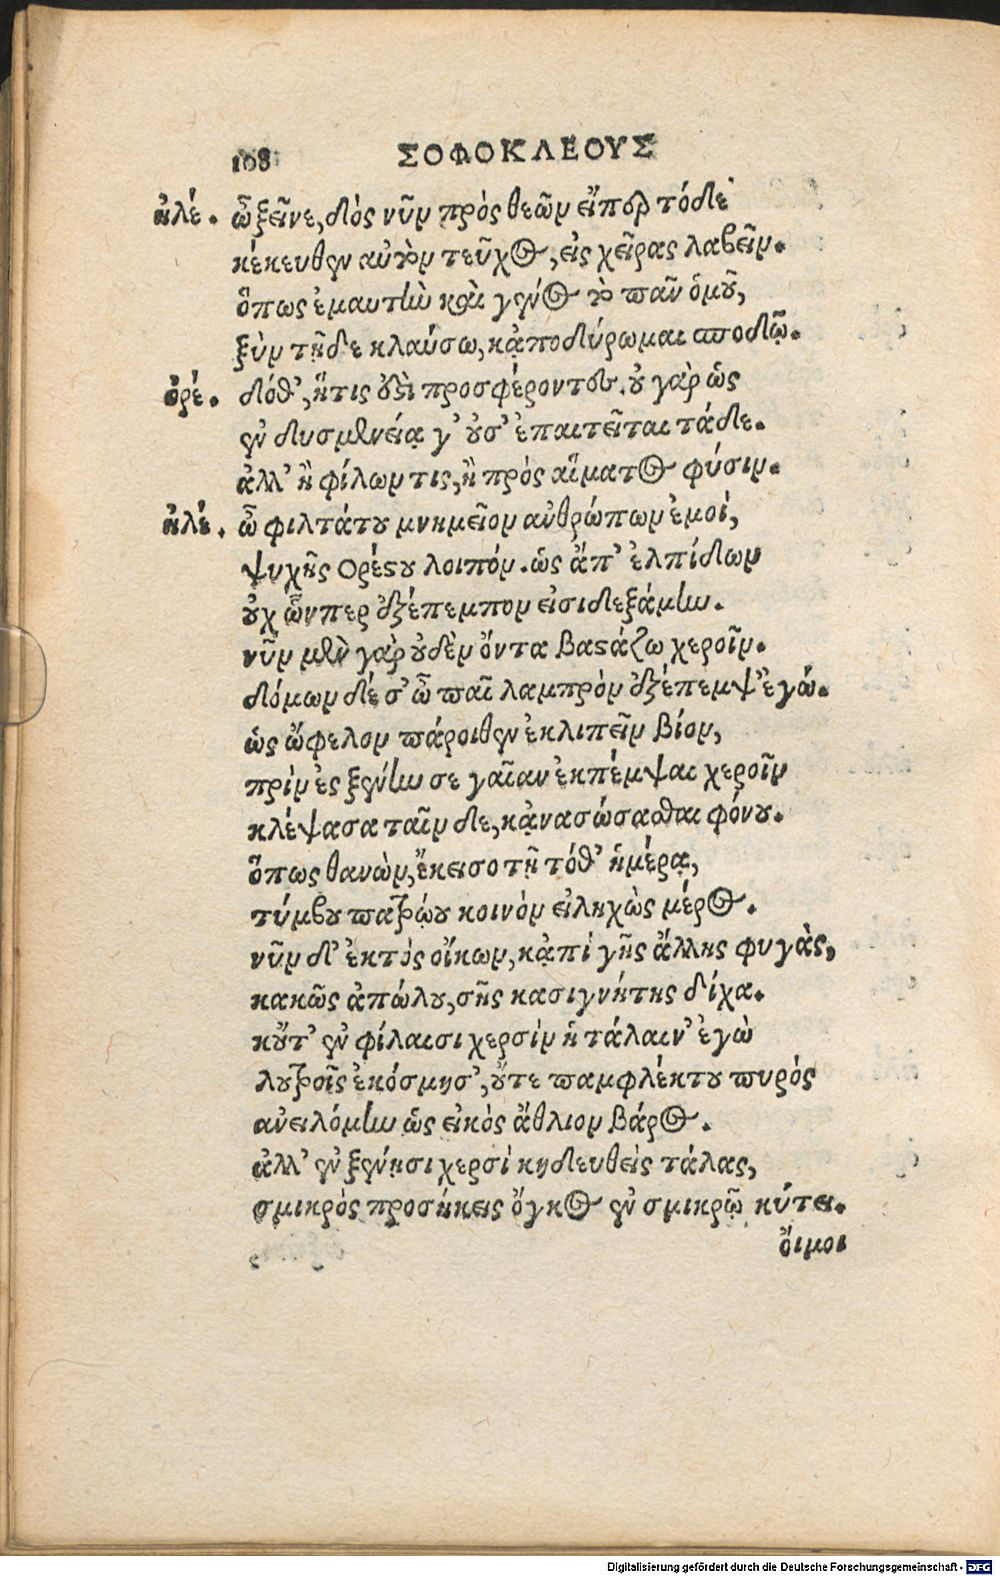 108 ΣΟΦΟΚΛΕΟΥΣ
ἠλέ. ὦ ξεῖνε, δὸς νῦν πρὸς θεῶν εἴπερ τόδε
κέκευθεν αὐτὸν τεῦχος, εἰς χεῖρας λαβεῖν.
ὅπως ἐμαυτὴν καὶ γένος τὸ πᾶν ὁμοῦ,
ξὺν τῇδε κλαύσω, κᾀποδύρωμαι σποδῷ.
ὀρέ. δόθ᾽, ἥτις ὀξὶ προσφέροντες. οὐ γὰρ ὡς
ἐν δυσμενείᾳ γ᾽ οὖσ᾽ ἐπαιτεῖται τάδε.
ἀλλ᾽ ἢ φίλων τις, ἢ πρὸς αἵματος φύσιν.
ἠλέ. ὦ φιλτάτου μνημεῖον ἀνθρώπων ἐμοί,
ψυχῆς Ορέστου λοιπόν. ὡς ἄπ᾽ ἐλπίδων
οὐχ ὧνπερ ἐξέπεμπον εἰσιδεξάμην.
νῦν μὲν γὰρ οὐδὲν ὄντα βαστάζω χεροῖν.
δόμων δέ σ᾽ ὦ παῖ λαμπρὸν ἐξέπεμψ᾽ ἐγώ.
ὡς ὤφελον πάροιθεν ἐκλιπεῖν βίον,
πρὶν ἐς ξένην σε γαῖαν ἐκπέμψαι χεροῖν
κλέψασα ταῖν δε, κᾀνασώσασθαι φόνου.
ὅπως θανὼν, ἔκεισο τῇ τόθ᾽ ἡμέρᾳ,
τύμβου πατρῴου κοινὸν εἰληχὼς μέρος.
νῦν δ᾽ ἐκτὸς οἴκων, κᾀπὶ γῆς ἄλλης φυγὰς,
κακῶς ἀπώλου, σῆς κασιγνήτης δίχα.
κοὔτ᾽ ἐν φίλαισι χερσὶν ἡ τάλαιν᾽ ἐγὼ
λουτροῖς ἐκόσμησ᾽, οὔτε παμφλέκτου πυρὸς
ἀνειλόμην ὡς εἰκὸς ἄθλιον βάρος.
ἀλλ᾽ ἐν ξένῃσι χερσὶ κηδευθεὶς τάλας,
σμικρὸς προσήκεις ὄγκος ἐν σμικρῷ κύτει.
ὄιμοι
Digitalisierung gefördert durch die Deutsche Forschungsgemeinschaft - DFG